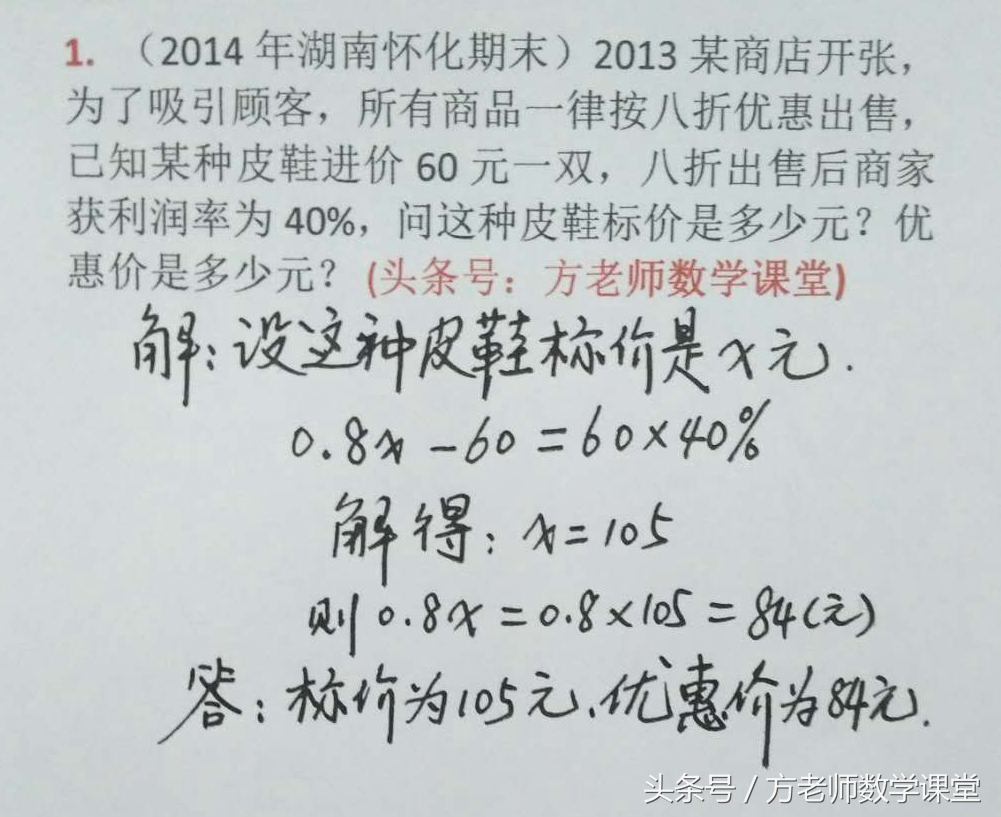 1. （2014 年湖南怀化期末）2013 某商店开张，
为了吸引顾客，所有商品一律按八折优惠出售，
已知某种皮鞋进价 60 元一双，八折出售后商家
获利润率为 40%，问这种皮鞋标价是多少元？优
惠价是多少元？(头条号：方老师数学课堂)
解：设这种皮鞋标价是x元.
0.8x-60=60×40%
解得：x=105
则0.8x=0.8×105=84(元)
答：标价为105元.优惠价为84元.
头条号 / 方老师数学课堂